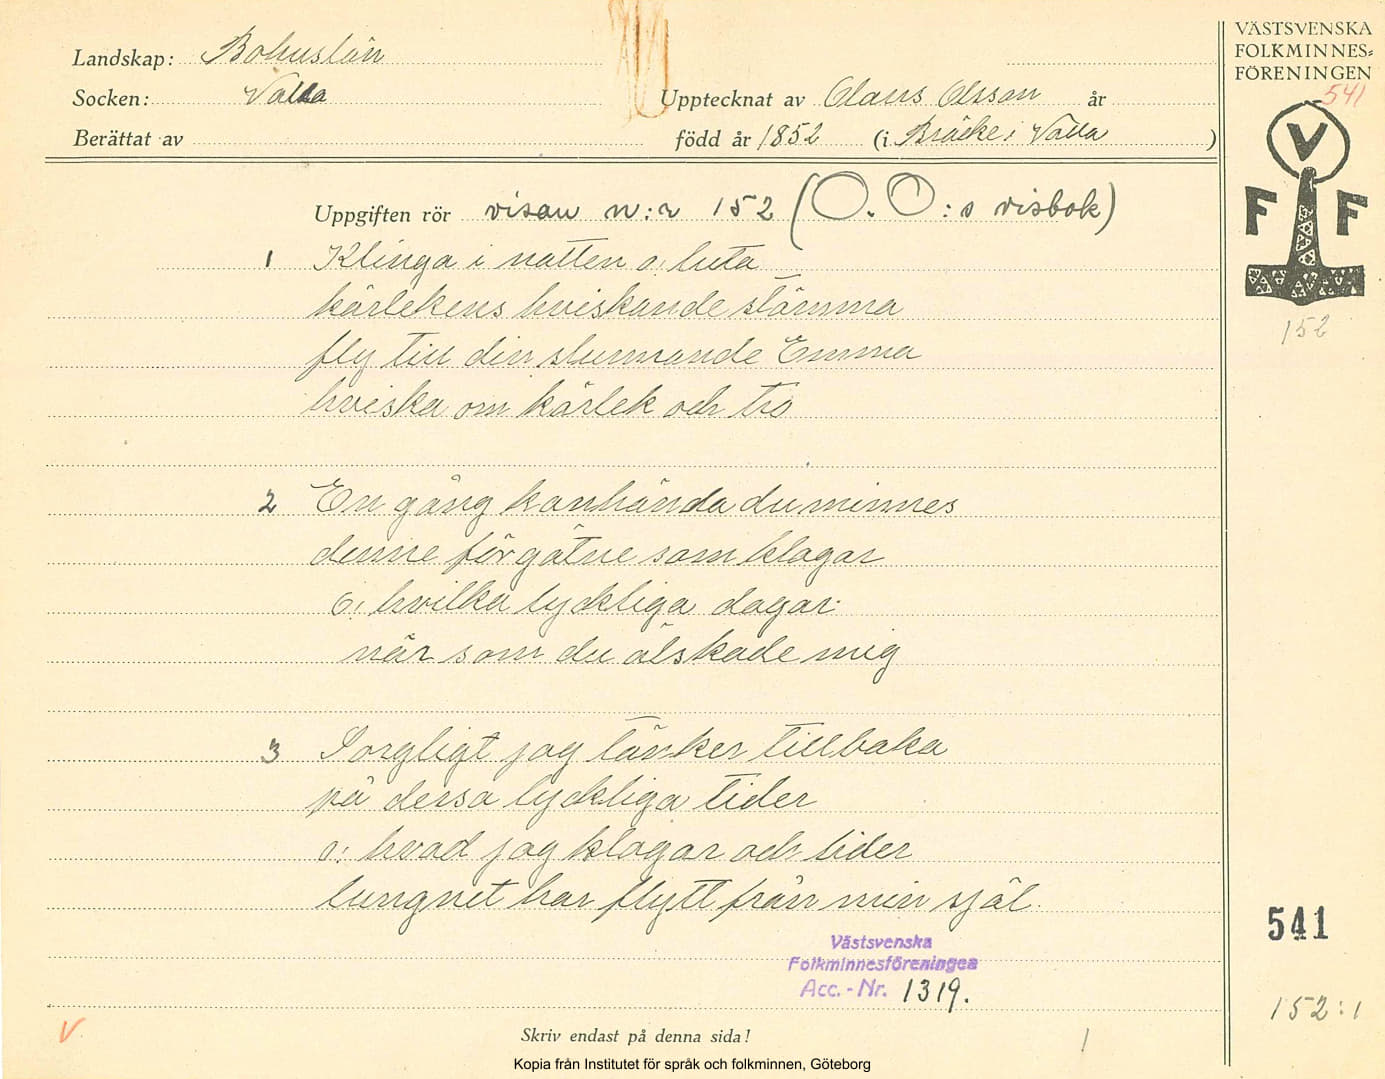 Landskap: Bohuslän
Socken: Valla
Berättat av
Upptecknat av Olaus Olsson år
född år 1852 (i Bräcke i Valla )
VÄSTSVENSKA
FOLKMINNES=
FÖRENINGEN
541
V
F F
152
Uppgiften rör visan n:r 152 (O. O:s visbok)
1 Klinga i natten o, luta
kärlekens hviskande stämma
fly till din slumrande Emma
hviska om kärlek och tro
2 En gång kanhända du minnes
denne förgätne som klagar
o, hvilka lyckliga dagar
när som du älskade mig
3 Sorgligt jag tänker tillbaka
på dessa lyckliga tider
o: hvad jag klagar och lider
lungnet har flytt från min själ
541
Västsvenska
Folkminnesföreningen
Acc.-Nr. 1319.
152:1
V
Skriv endast på denna sida!
1
Kopia från Institutet för språk och folkminnen, Göteborg